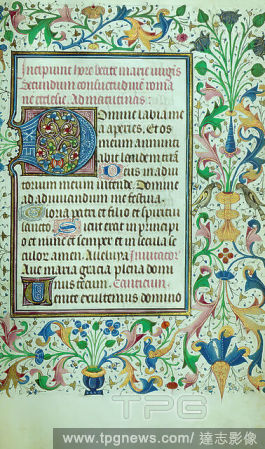 Incipiunt hore beate marie virgis
Secundum consuetudinē roma
ne ecclesie. Ad matutinas:
Domine labia me
a aperies. Et os
meum annunti
abit laudem tuā
Deus in adiu
torium meum intende. Domine
ad adiuvandum me festina.
Gloria patri et filio et spiritui
sancto. Sicut erat in principi
o et nunc et semper et in secula se
culor amen. Alleluia. Invitator
Ave maria gracia plena domi
nus tecum.
Venite exultemus domino
TPG
www.tpgnews.com / 達志影像